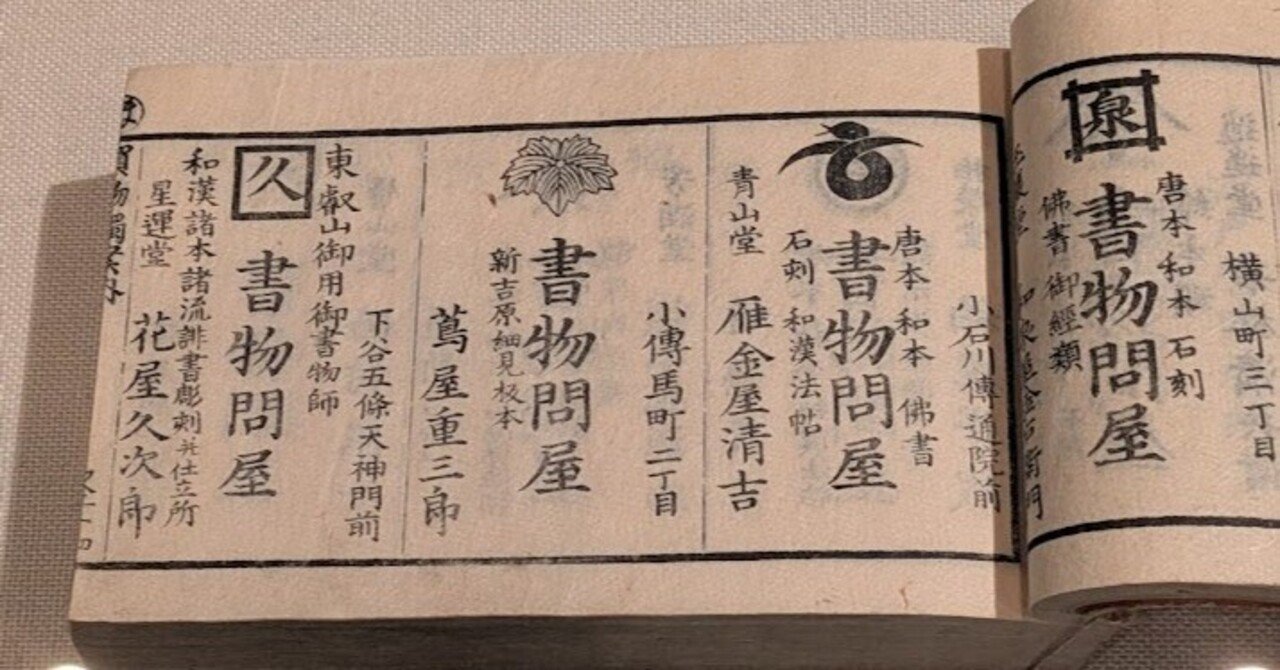 横山町三丁目
泉
唐本 和本 石刻
書物問屋
佛書 御經類
小石川傳通院前
唐本 和本 佛書
書物問屋
石刻 和漢法帖
青山堂 雁金屋清吉
小傳馬町二丁目
書物問屋
新吉原細見板本
蔦屋重三郎
下谷五條天神門前
東叡山御用御書物師
久
書物問屋
和漢諸本諸流誹書彫刻并仕立所
星運堂 花屋久次郎